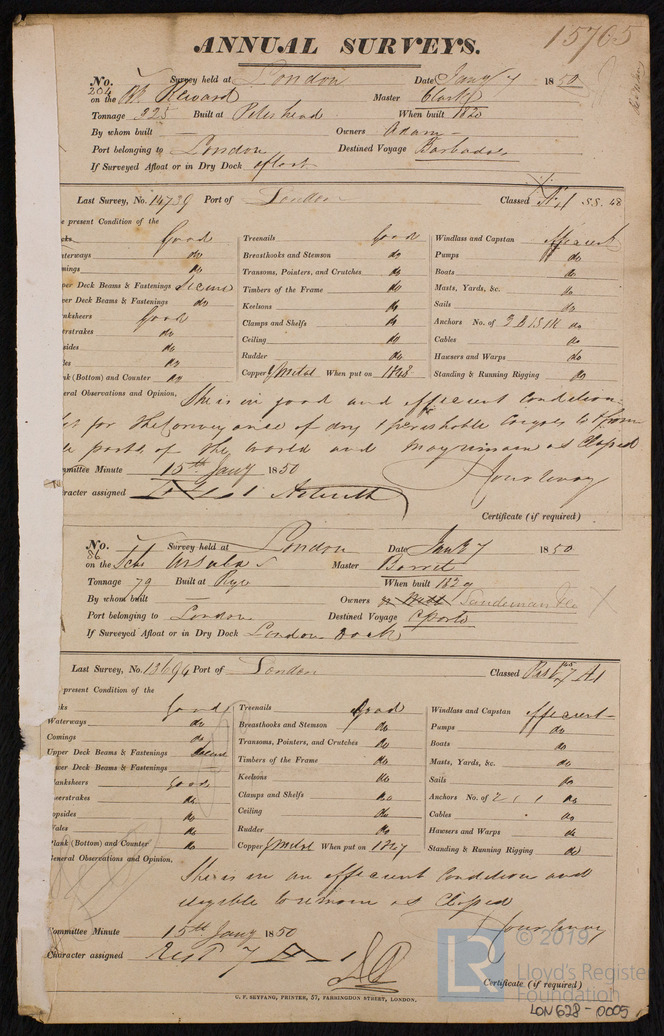 ANNUAL SURVEYS.
15765
No. 204 Survey held at London Date Jany 7 1850
on the Bk Steward Master Clark
Tonnage 325 Built at Peterhead When built
By whom built — Owners Adam
Port belonging to London Destined Voyage Barbadoes
If Surveyed Afloat or in Dry Dock afloat
Last Survey, No. 14739 Port of London Classed A1 SS. 48
e present Condition of the
Good Treenails Good Windlass and Capstan efficient
aterways do Breasthooks and Stemson do Pumps do
mings do Transoms, Pointers, and Crutches do Boats do
per Deck Beams & Fastenings Secure Timbers of the Frame do Masts, Yards, &c. do
wer Deck Beams & Fastenings do Keelsons do Sails do
anksheers Good Clamps and Shelfs do Anchors No. of 3 B 1 S 1 K do
erstrakes do Ceiling do Cables do
sides do Rudder do Hawsers and Warps do
les do Copper Y Metal When put on 1848 Standing & Running Rigging do
nk (Bottom) and Counter do
eral Observations and Opinion, She is in good and efficient Condition
fit for the Conveyance of dry & perishable Cargoes to & from
parts of the World and may remain as Classed
mmittee Minute 15th Jany 1850
aracter assigned
Certificate (if required)
No. 86 Survey held at London Date Jany 7 1850
on the Schr Ursula Master Barrett
Tonnage 79 Built at Rye When built 1829
By whom built — Owners Sandeman & Co
Port belonging to London Destined Voyage Oporto
If Surveyed Afloat or in Dry Dock London Dock
Last Survey, No. 13694 Port of London Classed A1
present Condition of the
ks Good Treenails Good Windlass and Capstan efficient
Waterways do Breasthooks and Stemson do Pumps do
Comings do Transoms, Pointers, and Crutches do Boats do
Upper Deck Beams & Fastenings Secure Timbers of the Frame do Masts, Yards, &c. do
ower Deck Beams & Fastenings Keelsons do Sails do
lanksheers Good Clamps and Shelfs do Anchors No. of 2 1 1 do
heerstrakes do Ceiling do Cables do
opsides do Rudder do Hawsers and Warps do
Wales do Copper Y Metal When put on 1847 Standing & Running Rigging do
Plank (Bottom) and Counter do
General Observations and Opinion, She is in an efficient Condition and
eligible to remain as Classed
ommittee Minute 15th Jany 1850
Character assigned
Certificate (if required)
C. F. SEYFANG, PRINTER, 57, FARRINGDON STREET, LONDON.
LR © 2019
Lloyd's Register
Foundation
LON628-0005